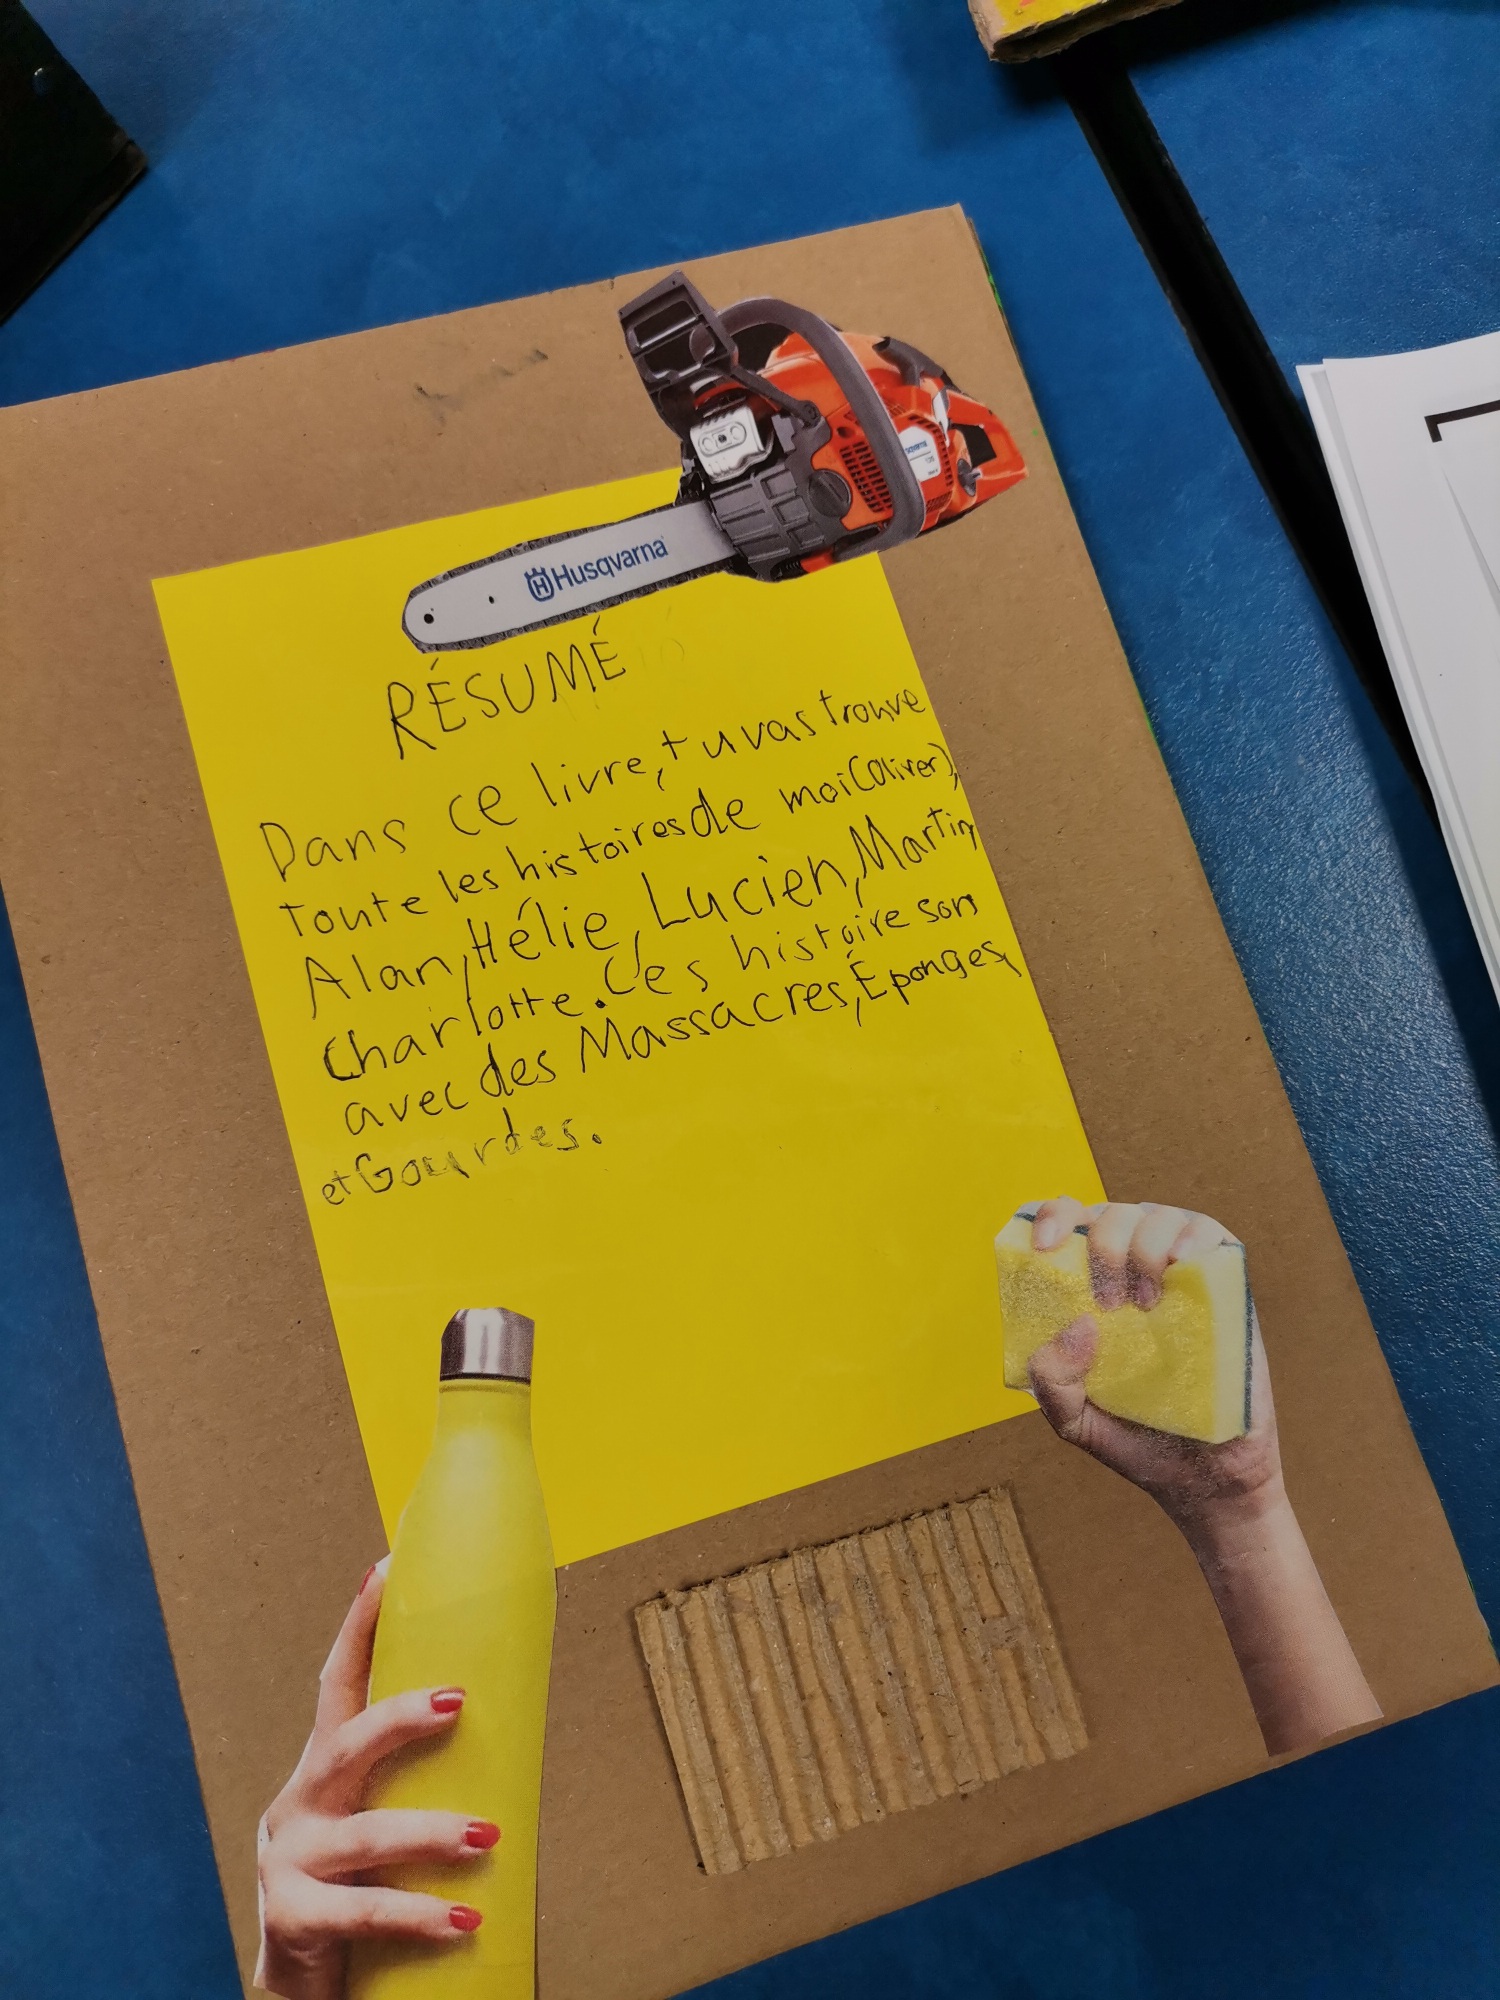 Husqvarna
RÉSUMÉ
Dans ce livre, tu vas trouve
toute les histoires de moi (Oliver),
Alan, Hélie, Lucien, Martin,
Charlotte. Ces histoire son
avec des Massacres, Éponges,
et Gourdes.